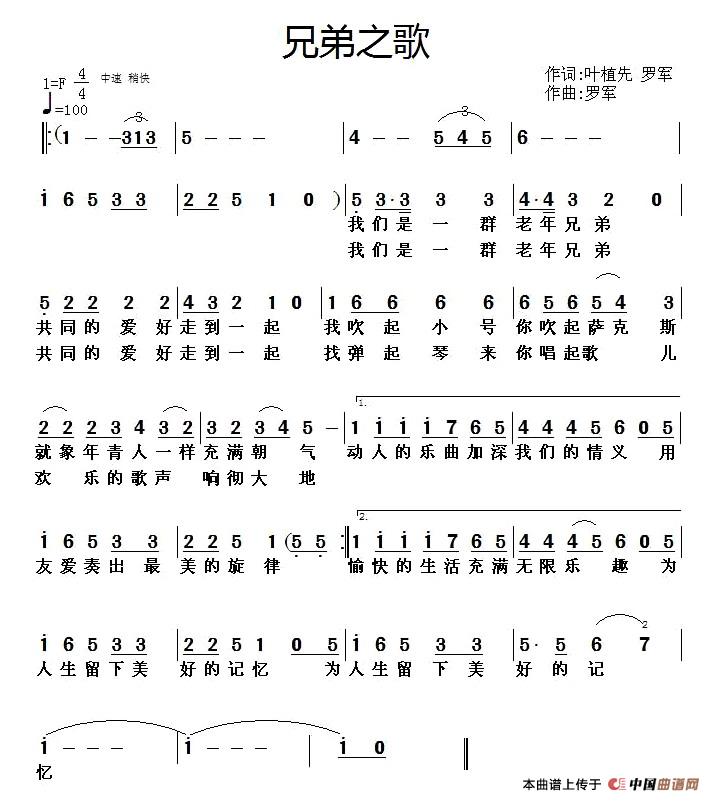 兄弟之歌
1=F 4/4 中速 稍快
♩=100
作词:叶植先 罗军
作曲:罗军
(1 - - 313 | 5 - - - | 4 - - 545 | 6 - - -
i 6 5 3 3 | 2 2 5 1 0 ) | 5 3·3 3 3 | 4·4 3 2 0
我们是一群老年兄弟
我们是一群老年兄弟
5 2 2 2 2 | 4 3 2 1 0 | 1 6 6 6 6 | 6 5 6 5 4 3
共同的爱好走到一起 我吹起小号你吹起萨克斯
共同的爱好走到一起 找弹起琴来你唱起歌儿
2 2 2 3 4 3 2 | 3 2 3 4 5 - | 1. 1 i i i 7 6 5 | 4 4 4 5 6 0 5
就象年青人一样充满朝气 动人的乐曲加深我们的情义用
欢乐的歌声响彻大地
i 6 5 3 3 | 2 2 5 1 (5 5 :| 2. 1 i i i 7 6 5 | 4 4 4 5 6 0 5
友爱奏出最美的旋律 愉快的生活充满无限乐趣为
i 6 5 3 3 | 2 2 5 1 0 5 | i 6 5 3 3 | 5· 5 6 2 7
人生留下美好的记忆 为人生留下美好的记
i - - - | i - - - | i 0
忆
本曲谱上传于 中国曲谱网